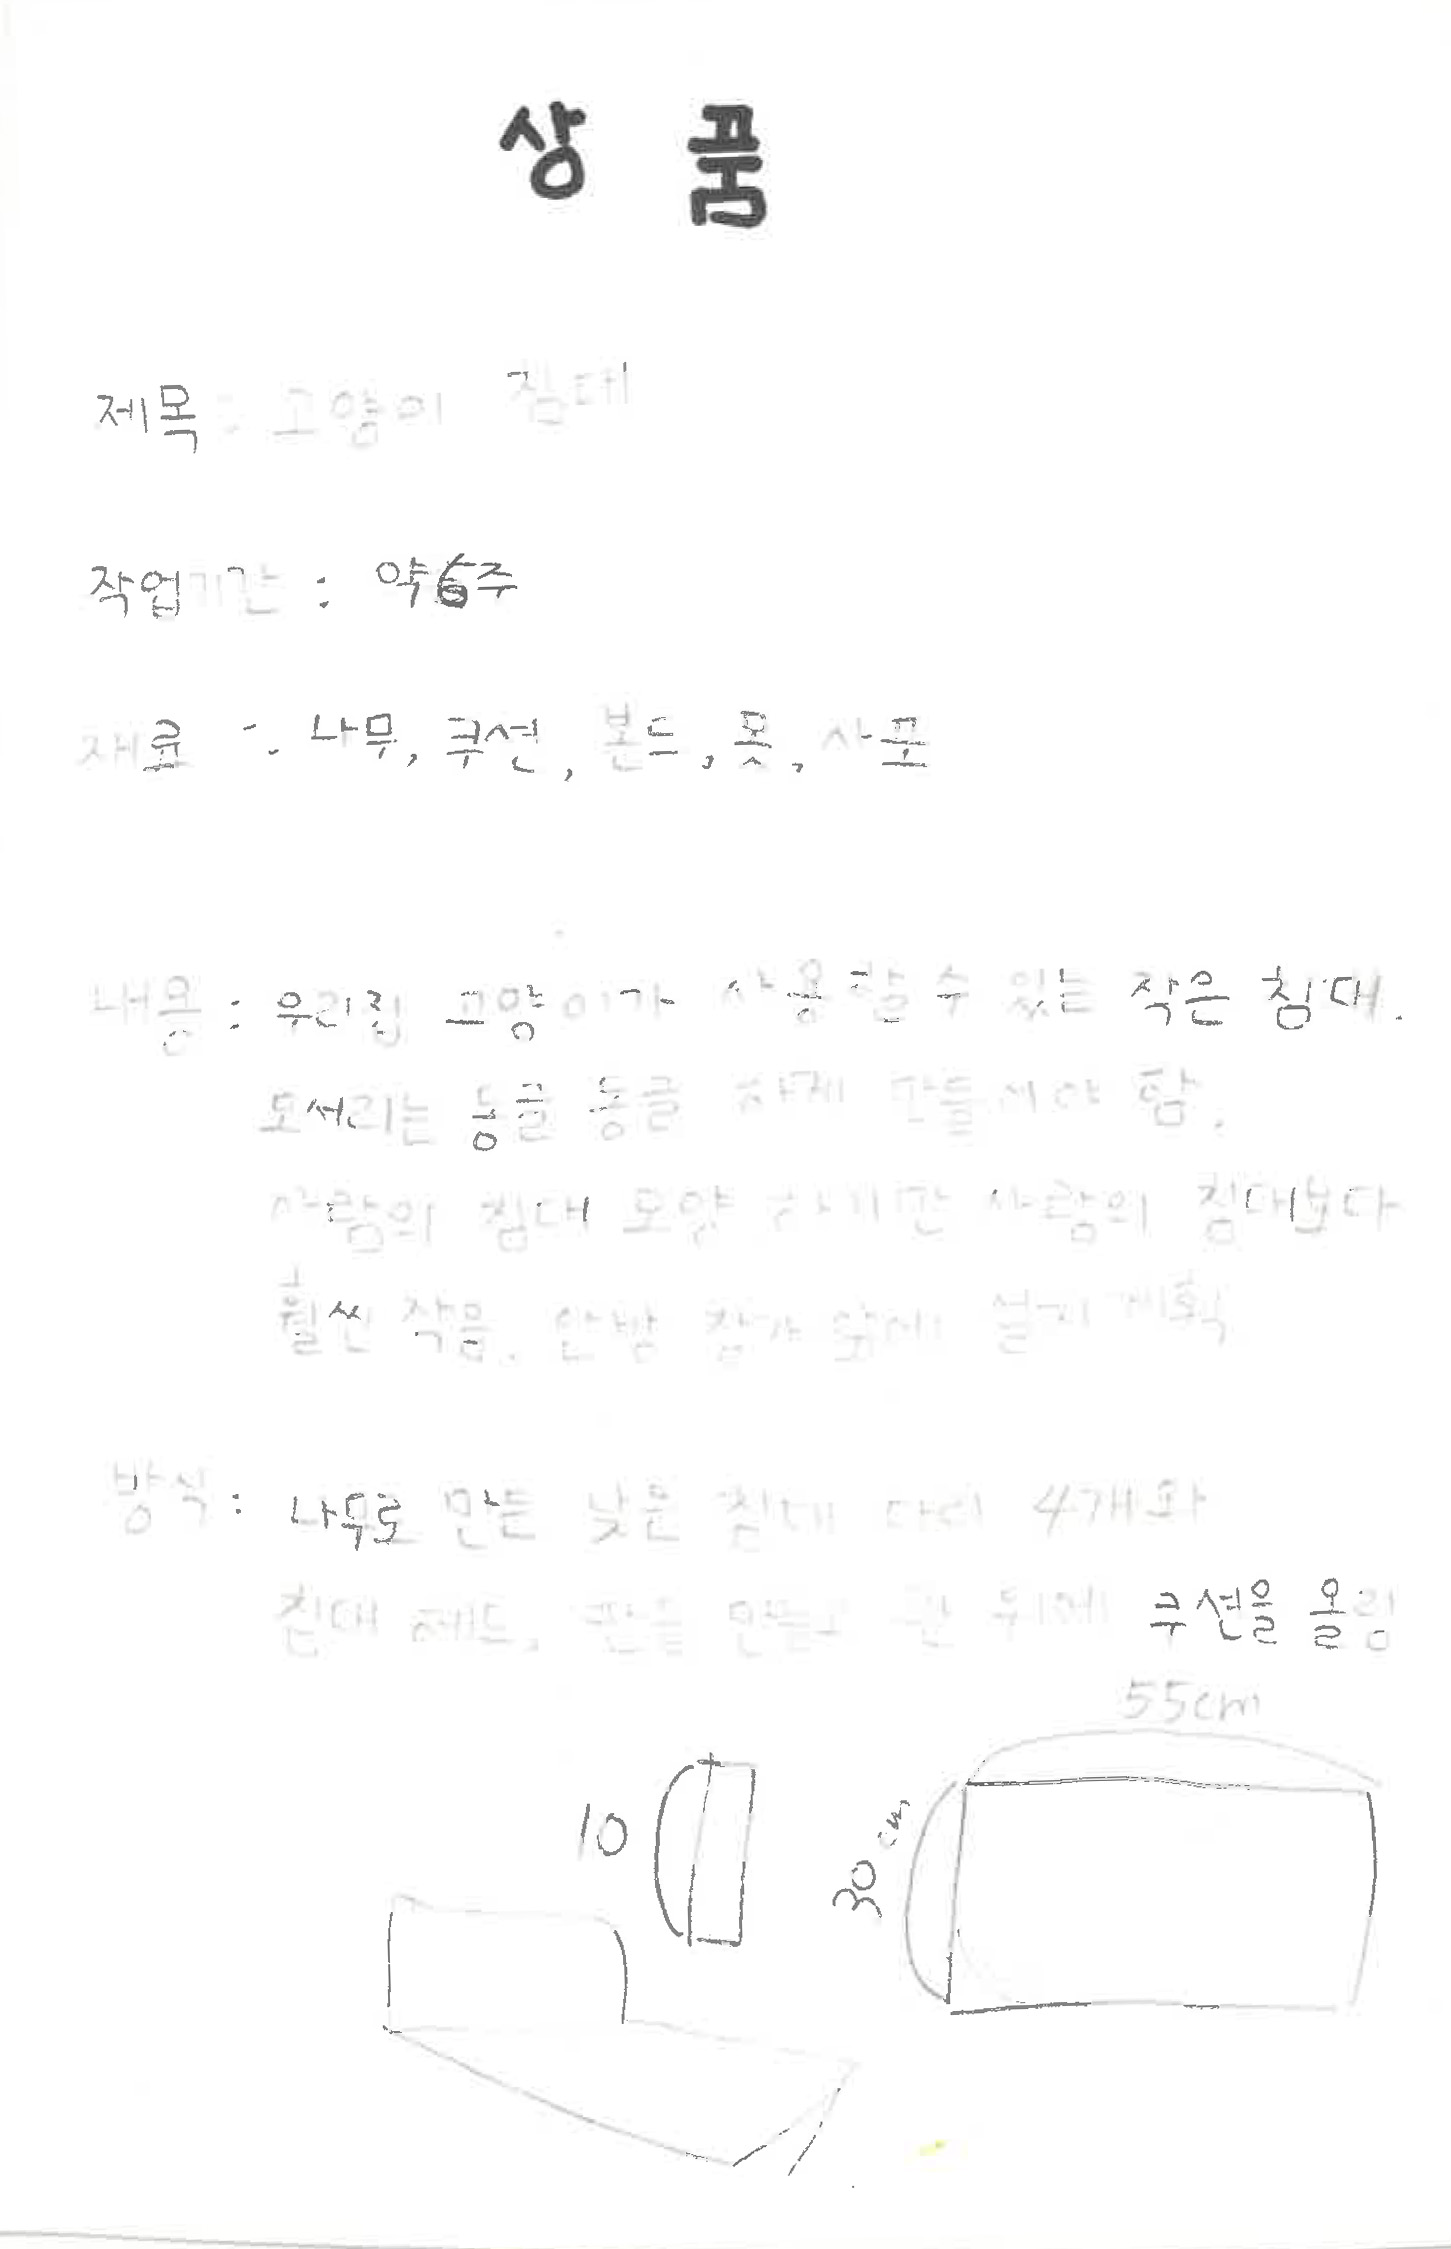 상 품
제목 : 고양이 침대
작업기간 : 약6주
재료 : 나무, 쿠션, 본드, 못, 사포
내용 : 우리집 고양이가 사용할수 있는 작은 침대.
모서리는 둥글 둥글 하게 만들어야 함.
사람의 침대 모양 하지만 사람의 침대보다
훨씬 작음. 안방 창가 앞에 설치 계획
방식 : 나무로 만든 낮은 침대 다리 4개와
침대 헤드, 판을 만들고 판 위에 쿠션을 올림
55cm
10
30cm